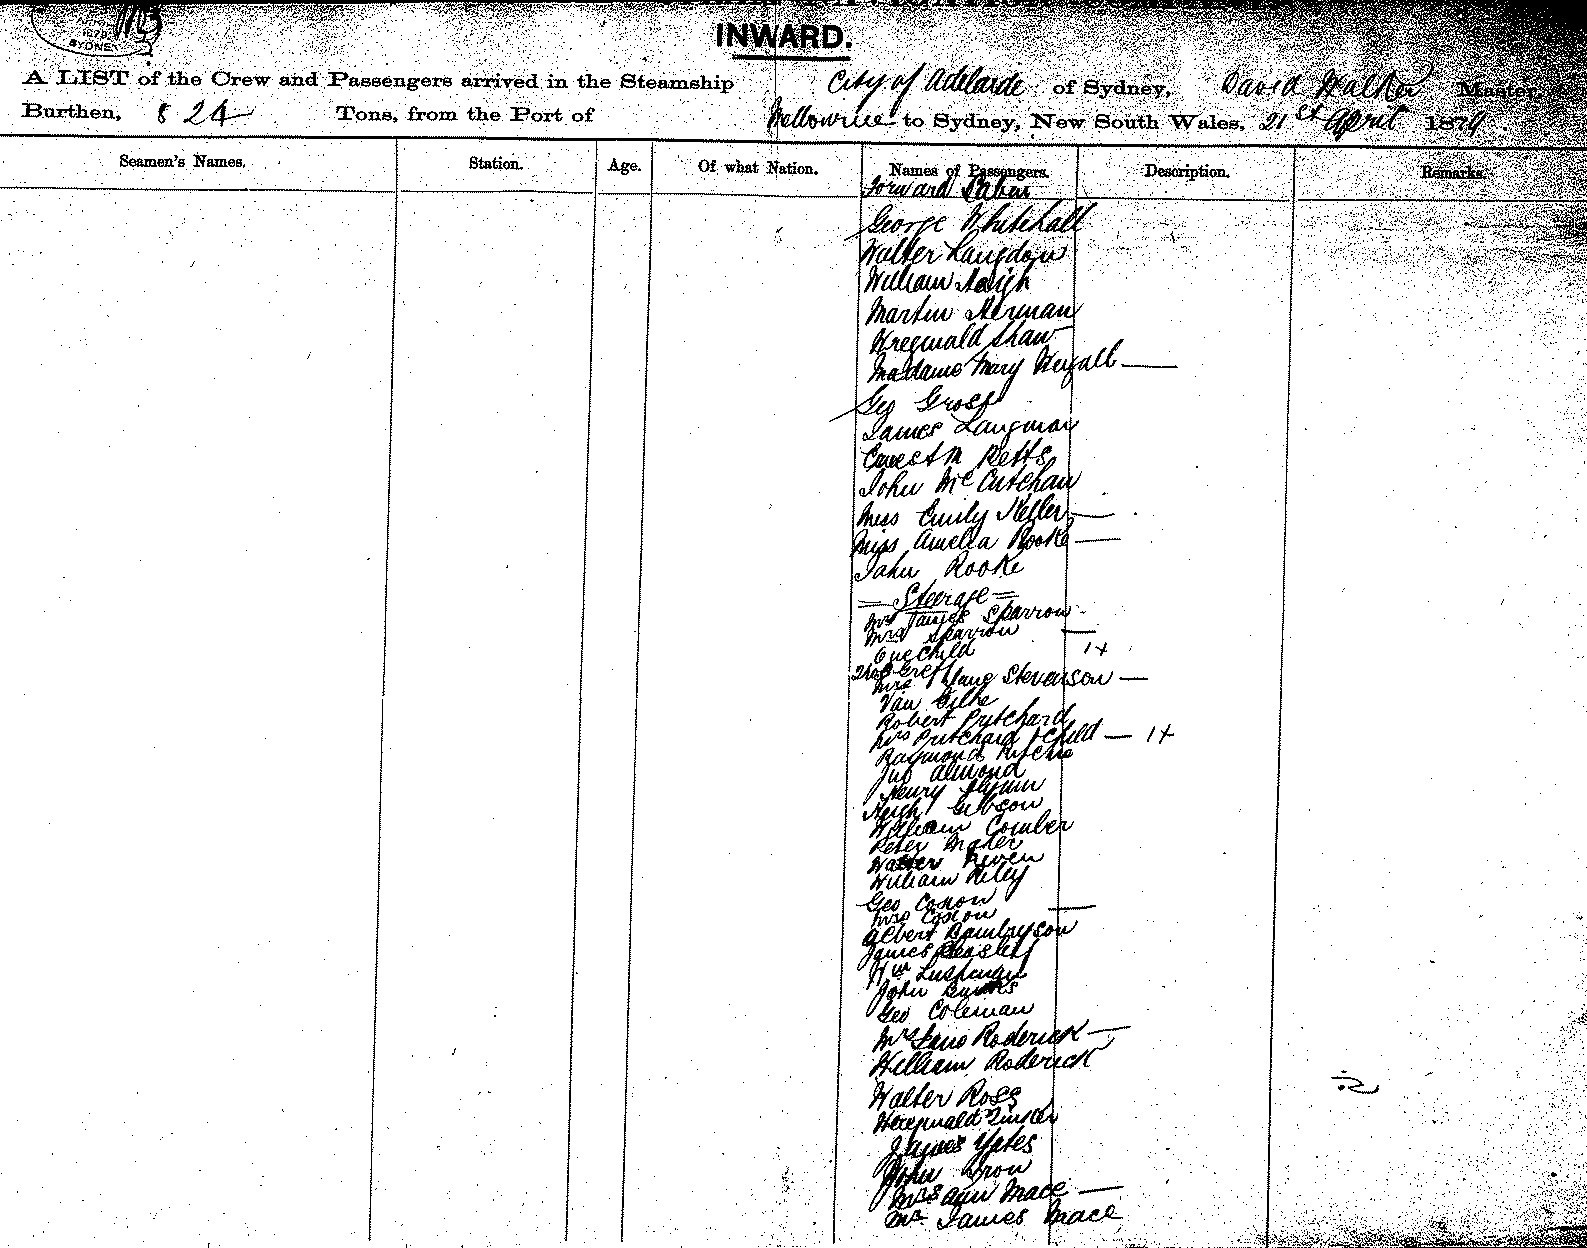 SYDNEY
INWARD.
A LIST of the Crew and Passengers arrived in the Steamship City of Adelaide of Sydney, David Walker Master
Burthen, 824 Tons, from the Port of Melbourne to Sydney, New South Wales, 21st April 187
Seamen's Names. Station. Age. Of what Nation. Names of Passengers. Description. Remarks.
Forward Cabin
George Whitehall
Walter Langdon
William Haigh
Martin Herman
Shaw
Madame Mary
Geo
James Langman
Ernest M Betts
John McCutchan
Miss Emily Keller
Miss Amelia Rooke
John Rooke
= Steerage =
Mr James Sparrow
Mrs Sparrow
One Child 1+
Mrs Jane Stevenson
Van
Robert Pritchard
Mrs Pritchard & Child 1+
Raymond Ritchie
Almond
Henry
Hugh Gibson
William Comber
Peter Maher
Walter
William Riley
Geo Coxon
Mrs Coxon
Albert
James Beasley
Wm
John Banks
Geo Coleman
Mrs Jane Roderick
William Roderick
Walter Ross
James Yates
John
Mrs Ann Mace
Mr James Mace